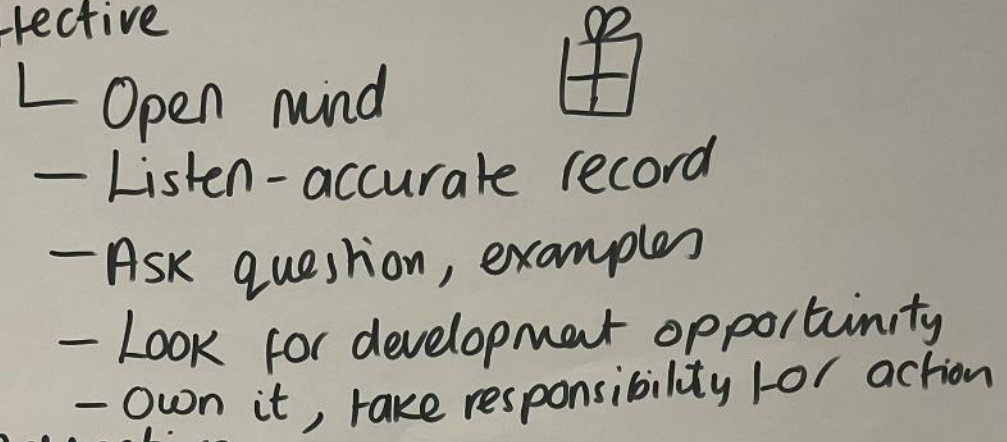 └ Open mind
- Listen - accurate record
- Ask question, examples
- Look for development opportunity
- Own it, take responsibility for action